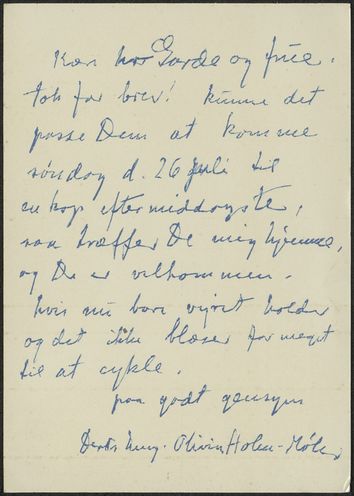 Kære hr Garde og frue.
tak for brev! kunne det
passe Dem at komme
søndag d. 26 juli til
en kop eftermiddagste,
saa træffer De mig hjemme,
og De er velkommen.
hvis nu bare vejret holder
og det ikke blæser for meget
til at cykle.
paa godt gensyn
Deres Olivia Holm-Møller